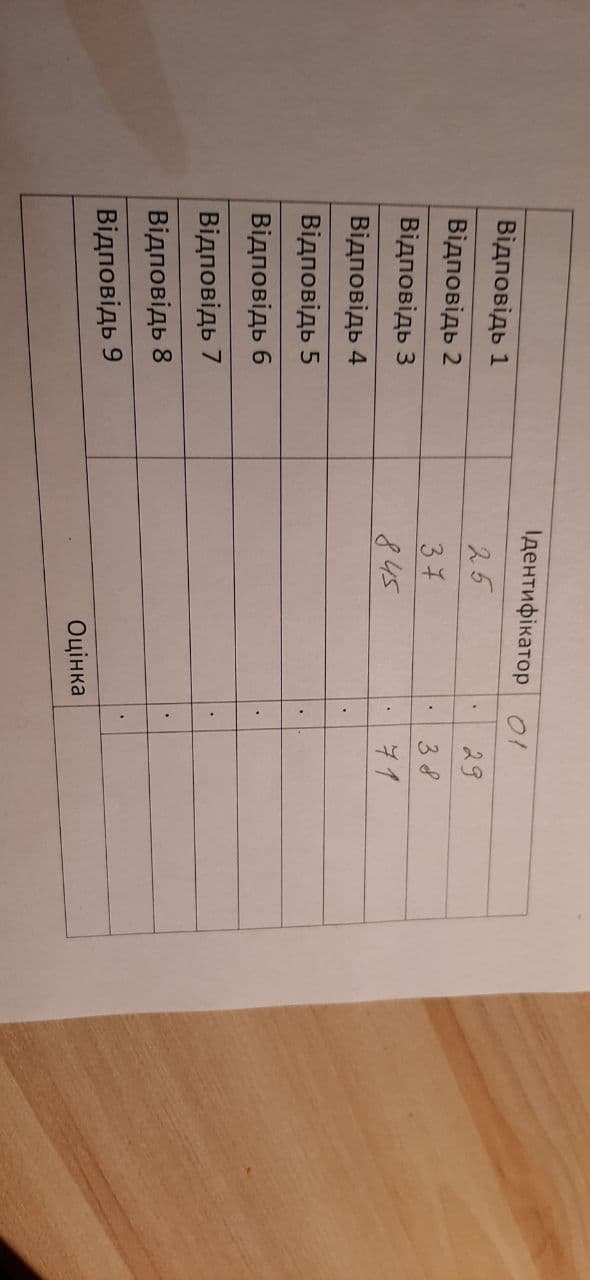 Ідентифікатор 01
Відповідь 1 25 . 29
Відповідь 2 37 . 38
Відповідь 3 845 . 71
Відповідь 4 .
Відповідь 5 .
Відповідь 6 .
Відповідь 7 .
Відповідь 8 .
Відповідь 9 .
Оцінка